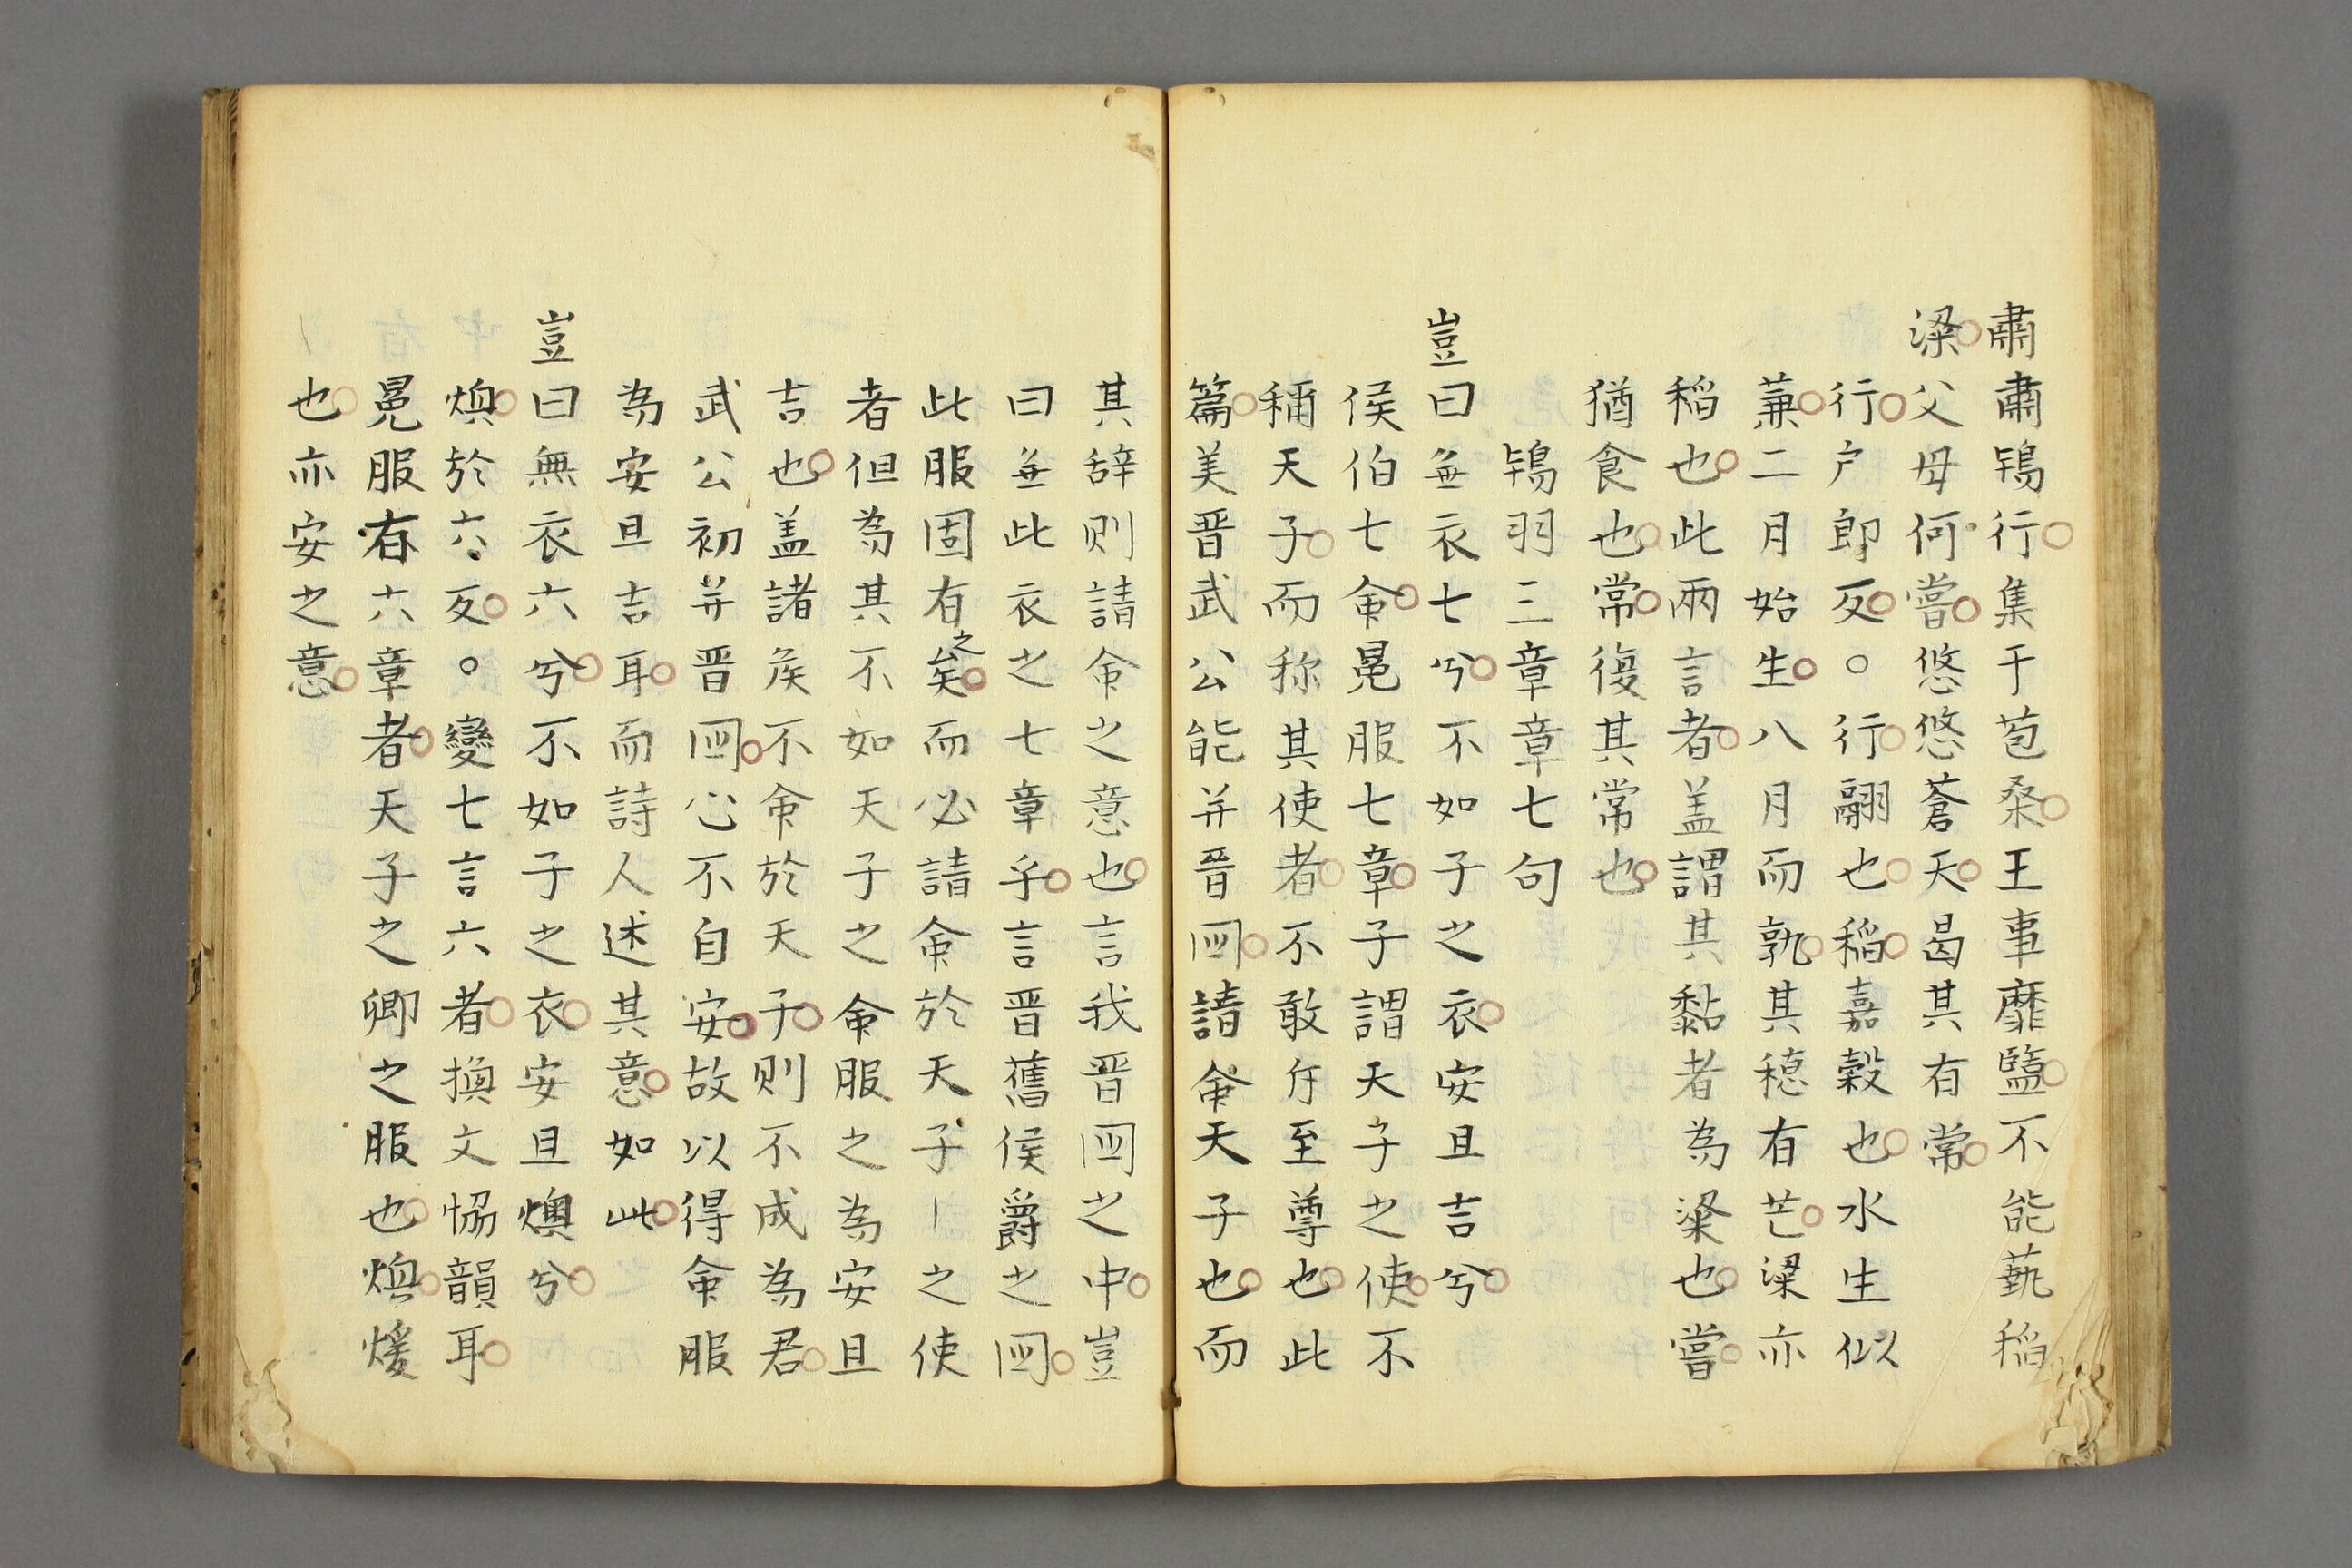 肅肅鴇行集于苞桑王事靡盬不能蓺稻
粱父母何嘗悠悠蒼天曷其有常
行户郎反○行翮也稲嘉穀也水生似
蒹二月始生八月而孰其穂有芒粱亦
稲也此兩言者盖謂其黏者為粱也嘗
猶食也常復其常也
鴇羽三章章七句
豈曰無衣七兮不如子之衣安且吉兮
侯伯七命冕服七章子謂天子之使不
稱天子而称其使者不敢斥至尊也此
篇美晋武公能并晋國請命天子也而
其辞則請命之意也言我晋国之中豈
曰無此衣之七章乎言晋舊侯爵之国
此服固有之矣而必請命於天子｜之使
者但為其不如天子之命服之為安且
吉也盖諸侯不命於天子則不成為君
武公初并晋國心不自安故以得命服
為安且吉耳而詩人述其意如此
豈曰無衣六兮不如子之衣安且燠兮
燠於六反。變七言六者換文恊韻耳
冕服有六章者天子之卿之服也燠煖
也亦安之意